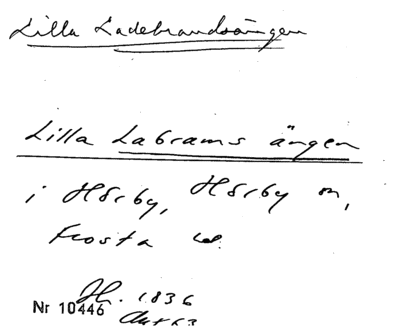 Lilla Ladebrandsängen
Lilla Labrams ängen
i Hörby, Hörby sn,
Frosta
1836
Nr 10446